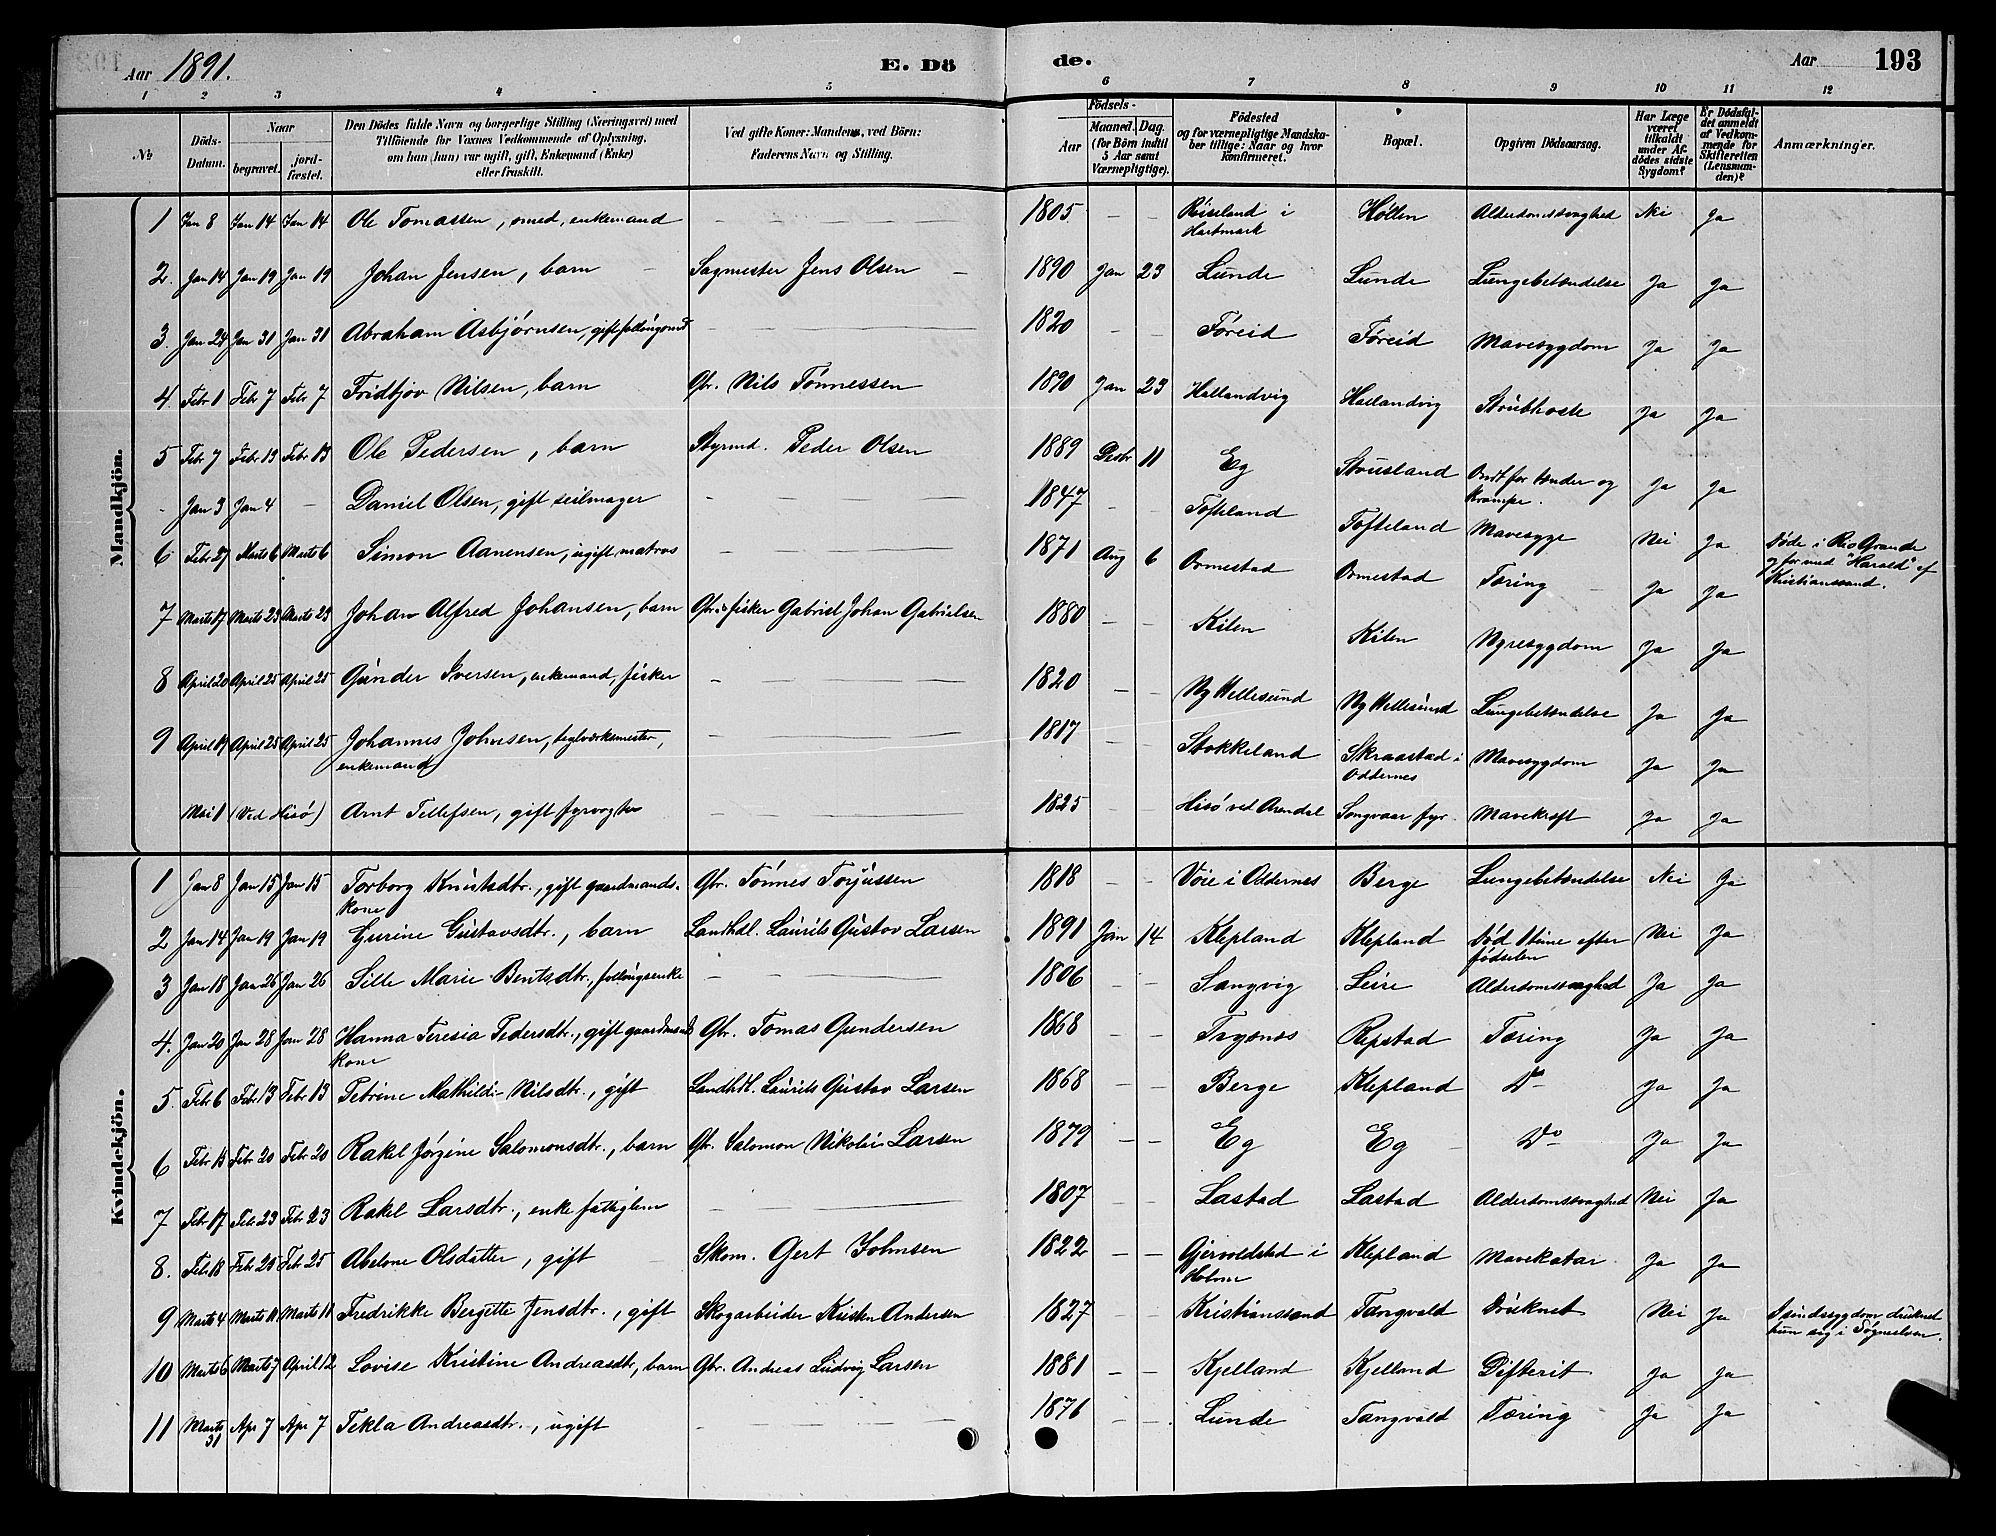 Aar 1891. E. Dö de. Aar 193
1 2 3 4 5 6 7 8 9 10 11 12
№ Döds-Datum. Naar begravet. jord-fæstet. Den Dödes fulde Navn og borgerlige Stilling (Næringsvei) med Tilföiende for Voxnes Vedkommende af Oplysning, om han (hun) var ugift, gift, Enkemand (Enke) eller fraskilt. Ved gifte Koner: Mandens, ved Börn: Faderens Navn og Stilling. Födsels- Aar Maaned. Dag. (for Börn indtil 5 Aar samt Værnepligtige). Födested og for værnepligtige Mandskaber tillige: Naar og hvor konfirmeret. Bopæl. Opgiven Dödsaarsag. Har Læge været tilkaldt under Afdödes sidste Sygdom? Er Dödsfaldet anmeldt af Vedkommende for Skifteretten (Lensmanden)? Anmærkninger.
Mandkjön.
1 Jan 8 Jan 14 Jan 14 Ole Tomassen, smed, enkemand — — 1805 — — Røisland i Hartmark Høllen Alderdomssvaghed Nei Ja
2. Jan 14 Jan 19 Jan 19 Johan Jensen, barn — Sagmester Jens Olsen — 1890 Jan 23 Lunde Lunde Lungebetændelse Ja Ja
3. Jan 24 Jan 31 Jan 31 Abraham Asbjørnsen, gift follougsmd — — 1820 — — Føreid Føreid Mavesygdom Ja Ja
4. Febr 1 Febr 7 Febr 7 Fridtjov Nilsen, barn Gbr. Nils Tønnessen 1890 Jan 23 Hallandvig Hallandvig Strubhoste Ja Ja
5 Febr 7 Febr 13 Febr 13 Ole Pedersen, barn Styrmd. Peder Olsen 1889 Decbr 11 Eg Stousland Ondt for tænder og krampe. Ja Ja
- Jan 3 Jan 4 — Daniel Olsen, gift seilmager — — 1847 — — Tofteland Tofteland Mavesyge Nei Ja
6 Febr 27 Marts 6 Marts 6 Simon Aanensen, ugift matros — — 1871 Aug 6 Ormestad Ormestad Tæring Ja Ja Døde i Rio Grande og for med "Harald" af Kristianssand.
7 Marts 17 Marts 23 Marts 23 Johan Alfred Johansen, barn Gbr. & fisker Gabriel Johan Gabrielsen 1880 — — Kilen Kilen Nyresygdom Ja Ja
8 April 20 April 25 April 25 Gunder Iversen, enkemand, fisker — — 1820 — — Ny Hellesund Ny Hellesund Lungebetændelse Ja Ja
9 April 19 April 25 April 25 Johannes Johnsen, teglværksmester, enkemand — — 1817 — — Stokkeland Skraastad i Oddernes Mavesygdom Ja Ja
Mai 1 (Ved Hisø) Arnt Tellefsen, gift fyrvogter — — 1825 — — Hisø ved Arendal Songvaar fyr Mavekræft Ja Ja
Kvindekjön.
1 Jan 8 Jan 15 Jan 15 Torborg Knudsdtr., gift gaardmands-kone Gbr. Tønnes Torjussen 1818 — — Voie i Oddernes Berge Lungebetændelse Nei Ja
2 Jan 14 Jan 19 Jan 19 Gurine Gustavsdtr., barn Landhdl. Laurits Gustav Larsen 1891 Jan 14 Klepland Klepland Død 1 time efter fødselen Nei Ja
3 Jan 18 Jan 26 Jan 26 Sille Marie Bentsdtr., follougsenke — — 1806 — — Langvig Leire Alderdomssvaghed Ja Ja
4. Jan 20 Jan 28 Jan 28 Hanna Teresia Pedersdtr., gift gaardmands kone Gbr. Tomas Gundersen 1868 — — Trysnes Repstad Tæring Ja Ja
5. Febr 6 Febr 13 Febr 13 Petrine Mathilde Nilsdtr., gift Landhdl. Laurits Gustav Larsen 1868 — — Berge Klepland Do Ja Ja
6 Febr 13 Febr 20 Febr 20 Rakel Jørgine Salomonsdtr., barn Gbr. Salomon Nikolai Larsen 1879 — — Eg Eg — Do Ja Ja
7 Febr 17 Febr 23 Febr 23 Rakel Larsdtr., enke fattiglem — — 1807 — — Lastad Lastad Alderdomssvaghed Nei Ja
8. Febr 18 Febr 25 Febr 25 Abelone Olsdatter, gift Skom. Gert Johnsen 1822 — — Gjervoldstad i Holme Klepland Mavekatar Ja Ja
9 Marts 4 Marts 11 Marts 11 Fredrikke Bergitte Jensdtr., gift Skogarbeider Kristen Andersen 1827 — — Kristianssand Tangvald Druknet Nei Ja I sindssygdom druknet hun sig i Søgneelven.
10 Marts 6 Marts 7 April 12 Lovise Kristine Andreasdtr., barn Gbr. Andreas Ludvig Larsen 1881 — — Kjelland Kjelland Difterit Ja Ja
11 Marts 31 Apr 7 Apr 7 Tekla Andreasdtr., ugift — — 1876 — — Lunde Tangvald Tæring Ja Ja